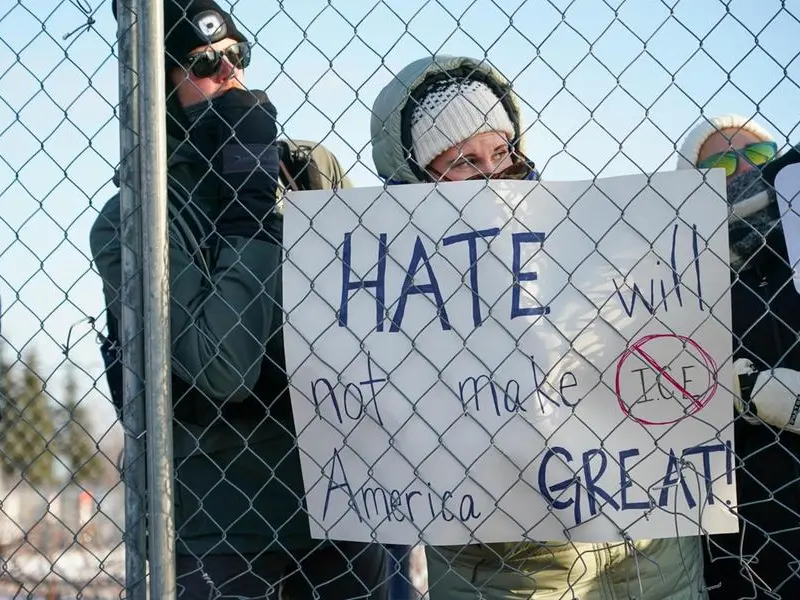 HATE will
not make I.C.E
America GREAT!